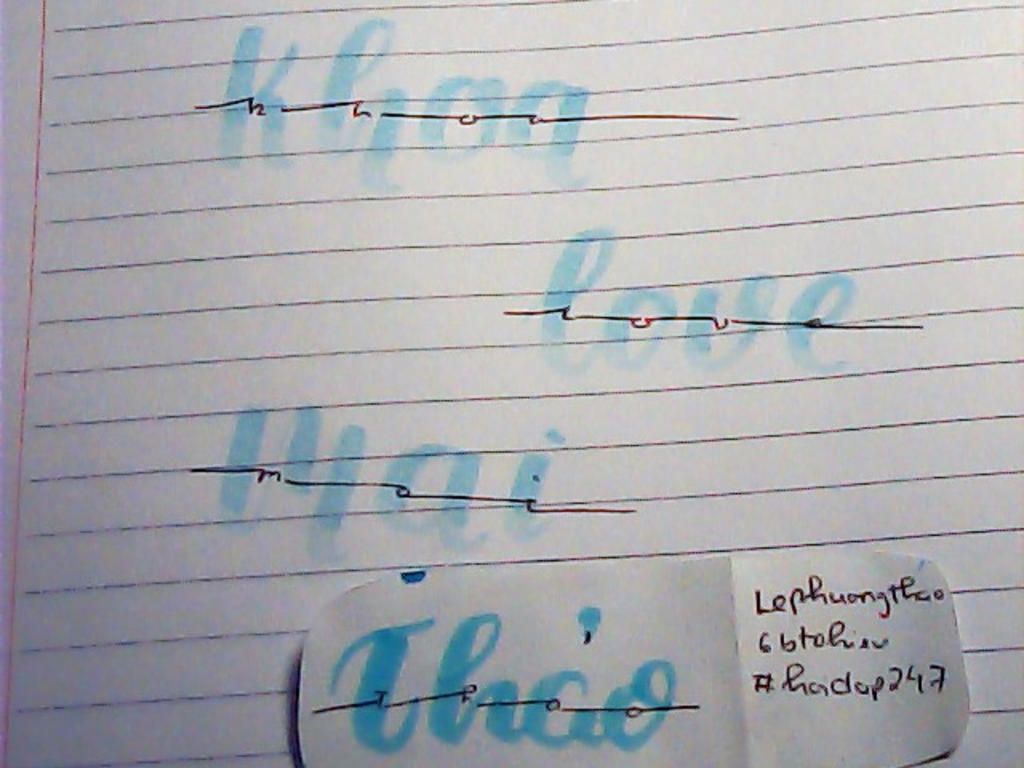 Khoa
love
Mai
Thảo
Lephuongthao
6btohieu
#hoidap247